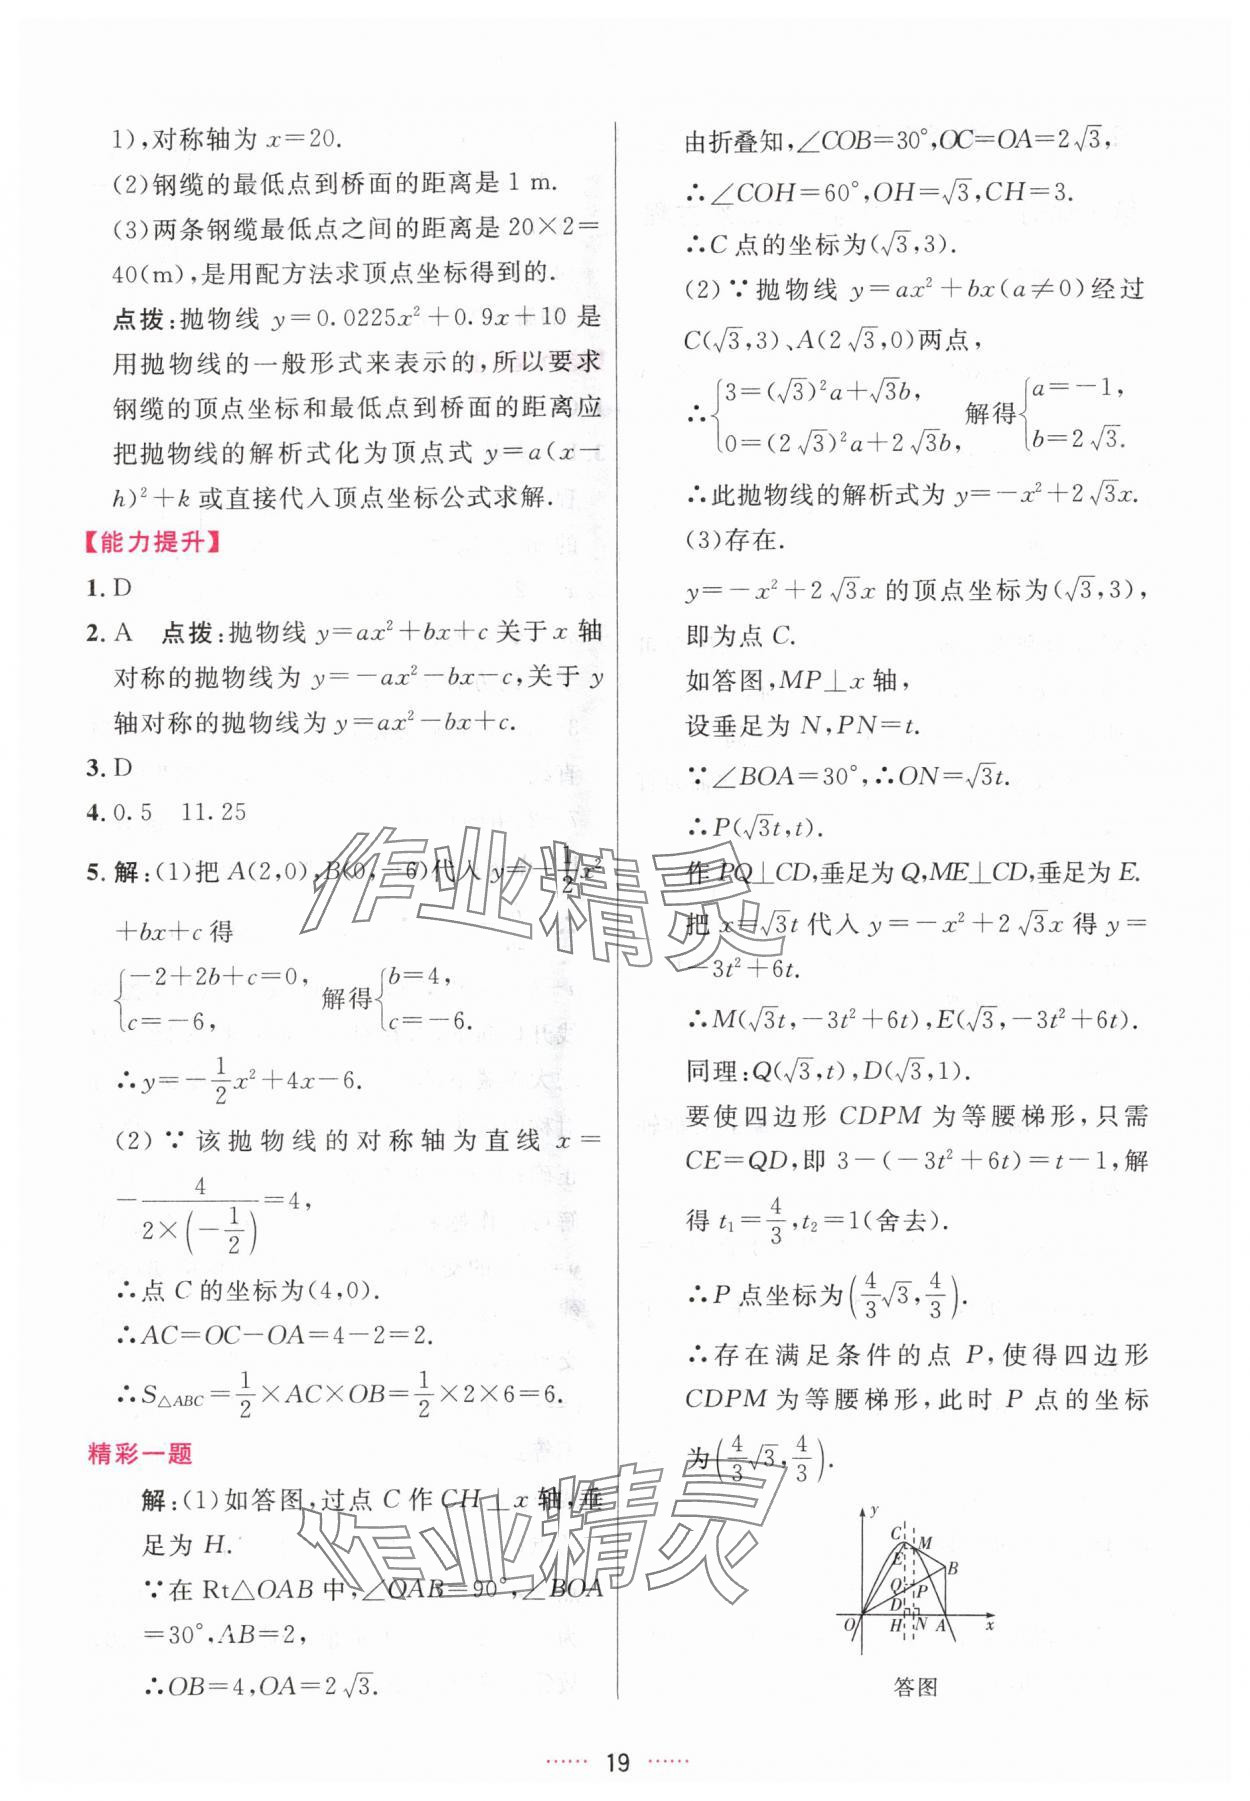 1),对称轴为 x=20.
(2)钢缆的最低点到桥面的距离是 1 m.
(3)两条钢缆最低点之间的距离是 20×2=
40(m),是用配方法求顶点坐标得到的.
点拨:抛物线 y=0.0225x²+0.9x+10 是
用抛物线的一般形式来表示的,所以要求
钢缆的顶点坐标和最低点到桥面的距离应
把抛物线的解析式化为顶点式 y=a(x-
h)²+k 或直接代入顶点坐标公式求解.
【能力提升】
1. D
2. A 点拨:抛物线 y=ax²+bx+c 关于 x 轴
对称的抛物线为 y=-ax²-bx-c,关于 y
轴对称的抛物线为 y=ax²-bx+c.
3. D
4. 0.5 11.25
5. 解:(1)把 A(2,0),B(0,-6)代入 y=-1/2x²
+bx+c 得
{-2+2b+c=0, c=-6, 解得{b=4, c=-6.
∴y=-1/2x²+4x-6.
(2)∵该抛物线的对称轴为直线 x=
-4/(2×(-1/2))=4,
∴点 C 的坐标为(4,0).
∴AC=OC-OA=4-2=2.
∴S△ABC=1/2×AC×OB=1/2×2×6=6.
精彩一题
解:(1)如答图,过点 C 作 CH⊥x 轴,垂
足为 H.
∵在 Rt△OAB 中,∠OAB=90°,∠BOA
=30°,AB=2,
∴OB=4,OA=2√3.
由折叠知,∠COB=30°,OC=OA=2√3,
∴∠COH=60°,OH=√3,CH=3.
∴C 点的坐标为(√3,3).
(2)∵抛物线 y=ax²+bx(a≠0)经过
C(√3,3)、A(2√3,0)两点,
∴{3=(√3)²a+√3b, 0=(2√3)²a+2√3b, 解得{a=-1, b=2√3.
∴此抛物线的解析式为 y=-x²+2√3x.
(3)存在.
y=-x²+2√3x 的顶点坐标为(√3,3),
即为点 C.
如答图,MP⊥x 轴,
设垂足为 N,PN=t.
∵∠BOA=30°,∴ON=√3t.
∴P(√3t,t).
作 PQ⊥CD,垂足为 Q,ME⊥CD,垂足为 E.
把 x=√3t 代入 y=-x²+2√3x 得 y=
-3t²+6t.
∴M(√3t,-3t²+6t),E(√3,-3t²+6t).
同理:Q(√3,t),D(√3,1).
要使四边形 CDPM 为等腰梯形,只需
CE=QD,即 3-(-3t²+6t)=t-1,解
得 t₁=4/3,t₂=1(舍去).
∴P 点坐标为(4/3√3,4/3).
∴存在满足条件的点 P,使得四边形
CDPM 为等腰梯形,此时 P 点的坐标
为(4/3√3,4/3).
y
C M
E
B
Q P
D
O H N A x
答图
作业精灵
作业精灵
······ 19 ······